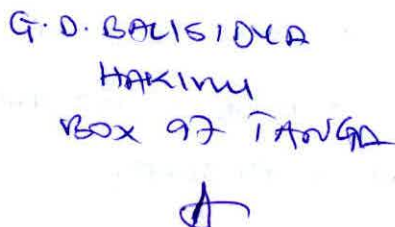 G. D. BALISIDYA
HAKIMU
BOX 97 TANGA